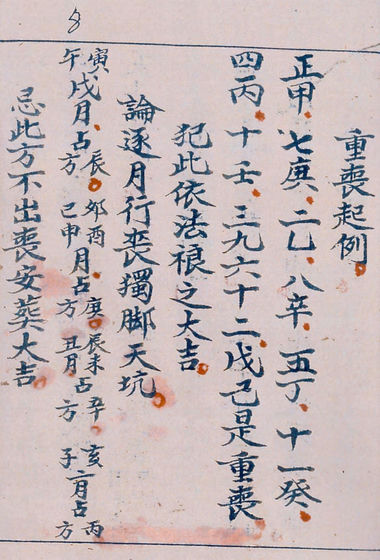 8
重喪起例
正甲七庚二乙八辛五丁十一癸
四丙十壬三九六十二戊己是重喪
犯此依法禳之大吉
論逐月行喪獨脚天坑
寅午戌月占辰方卯酉己申月占庚方辰未丑月占辛方亥子二月占丙方
忌此方不出喪安葬大吉